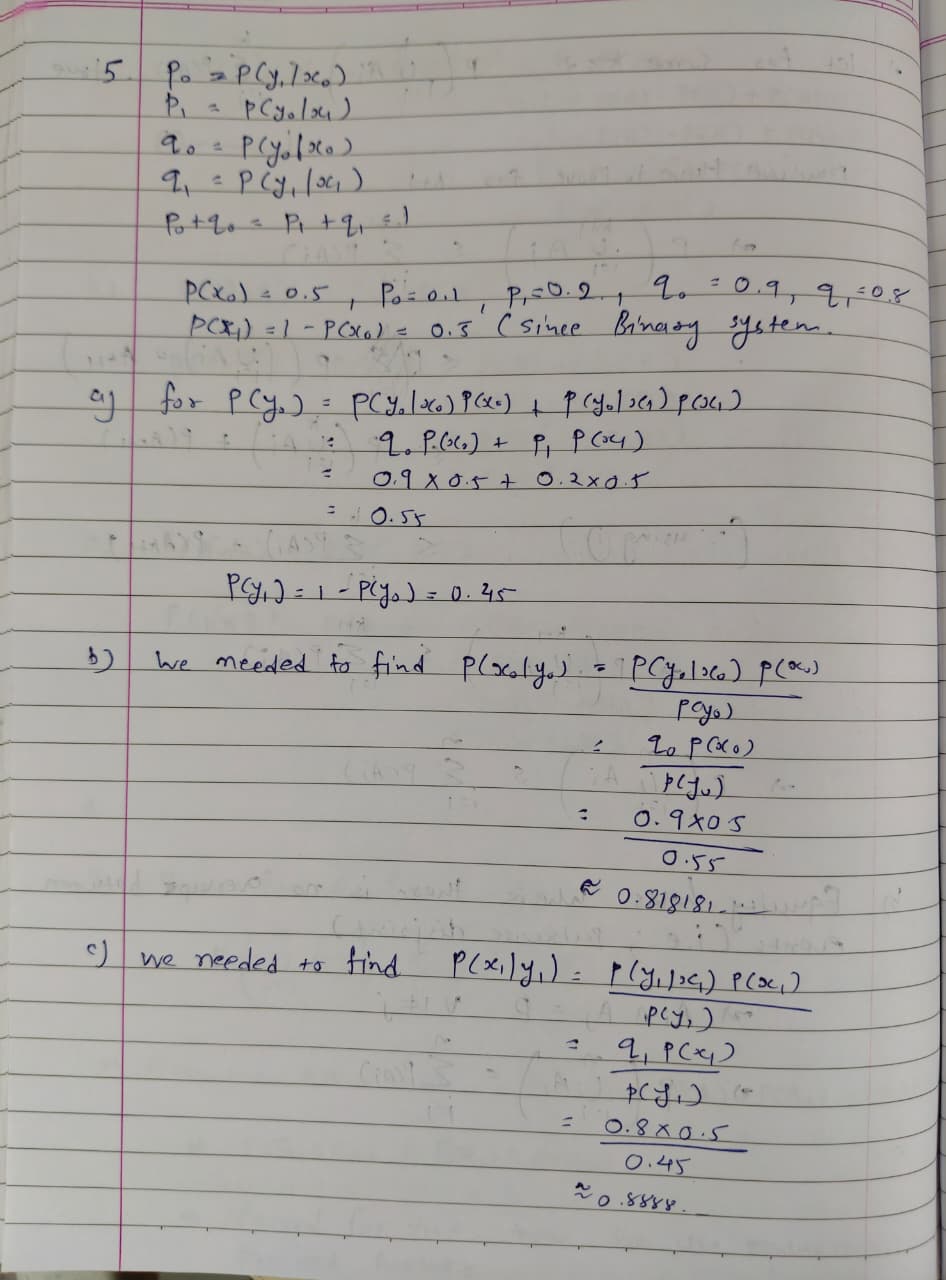 5 P₀ = P(y₁|x₀)
P₁ = P(y₀|x₁)
q₀ = P(y₀|x₀)
q₁ = P(y₁|x₁)
P₀+q₀ = P₁+q₁ = 1
P(x₀) = 0.5, P₀ = 0.1, P₁ = 0.2, q₀ = 0.9, q₁ = 0.8
P(x₁) = 1 - P(x₀) = 0.5 (since Binary system.
a) for P(y₀) = P(y₀|x₀) P(x₀) + P(y₀|x₁) P(x₁)
= q₀ P(x₀) + P₁ P(x₁)
= 0.9 x 0.5 + 0.2 x 0.5
= 0.55
P(y₁) = 1 - P(y₀) = 0.45
b) We needed to find P(x₀|y₀) = P(y₀|x₀) P(x₀)
P(y₀)
= q₀ P(x₀)
P(y₀)
= 0.9 x 0.5
0.55
≈ 0.818181...
c) we needed to find P(x₁|y₁) = P(y₁|x₁) P(x₁)
P(y₁)
= q₁ P(x₁)
P(y₁)
= 0.8 x 0.5
0.45
≈ 0.8888..